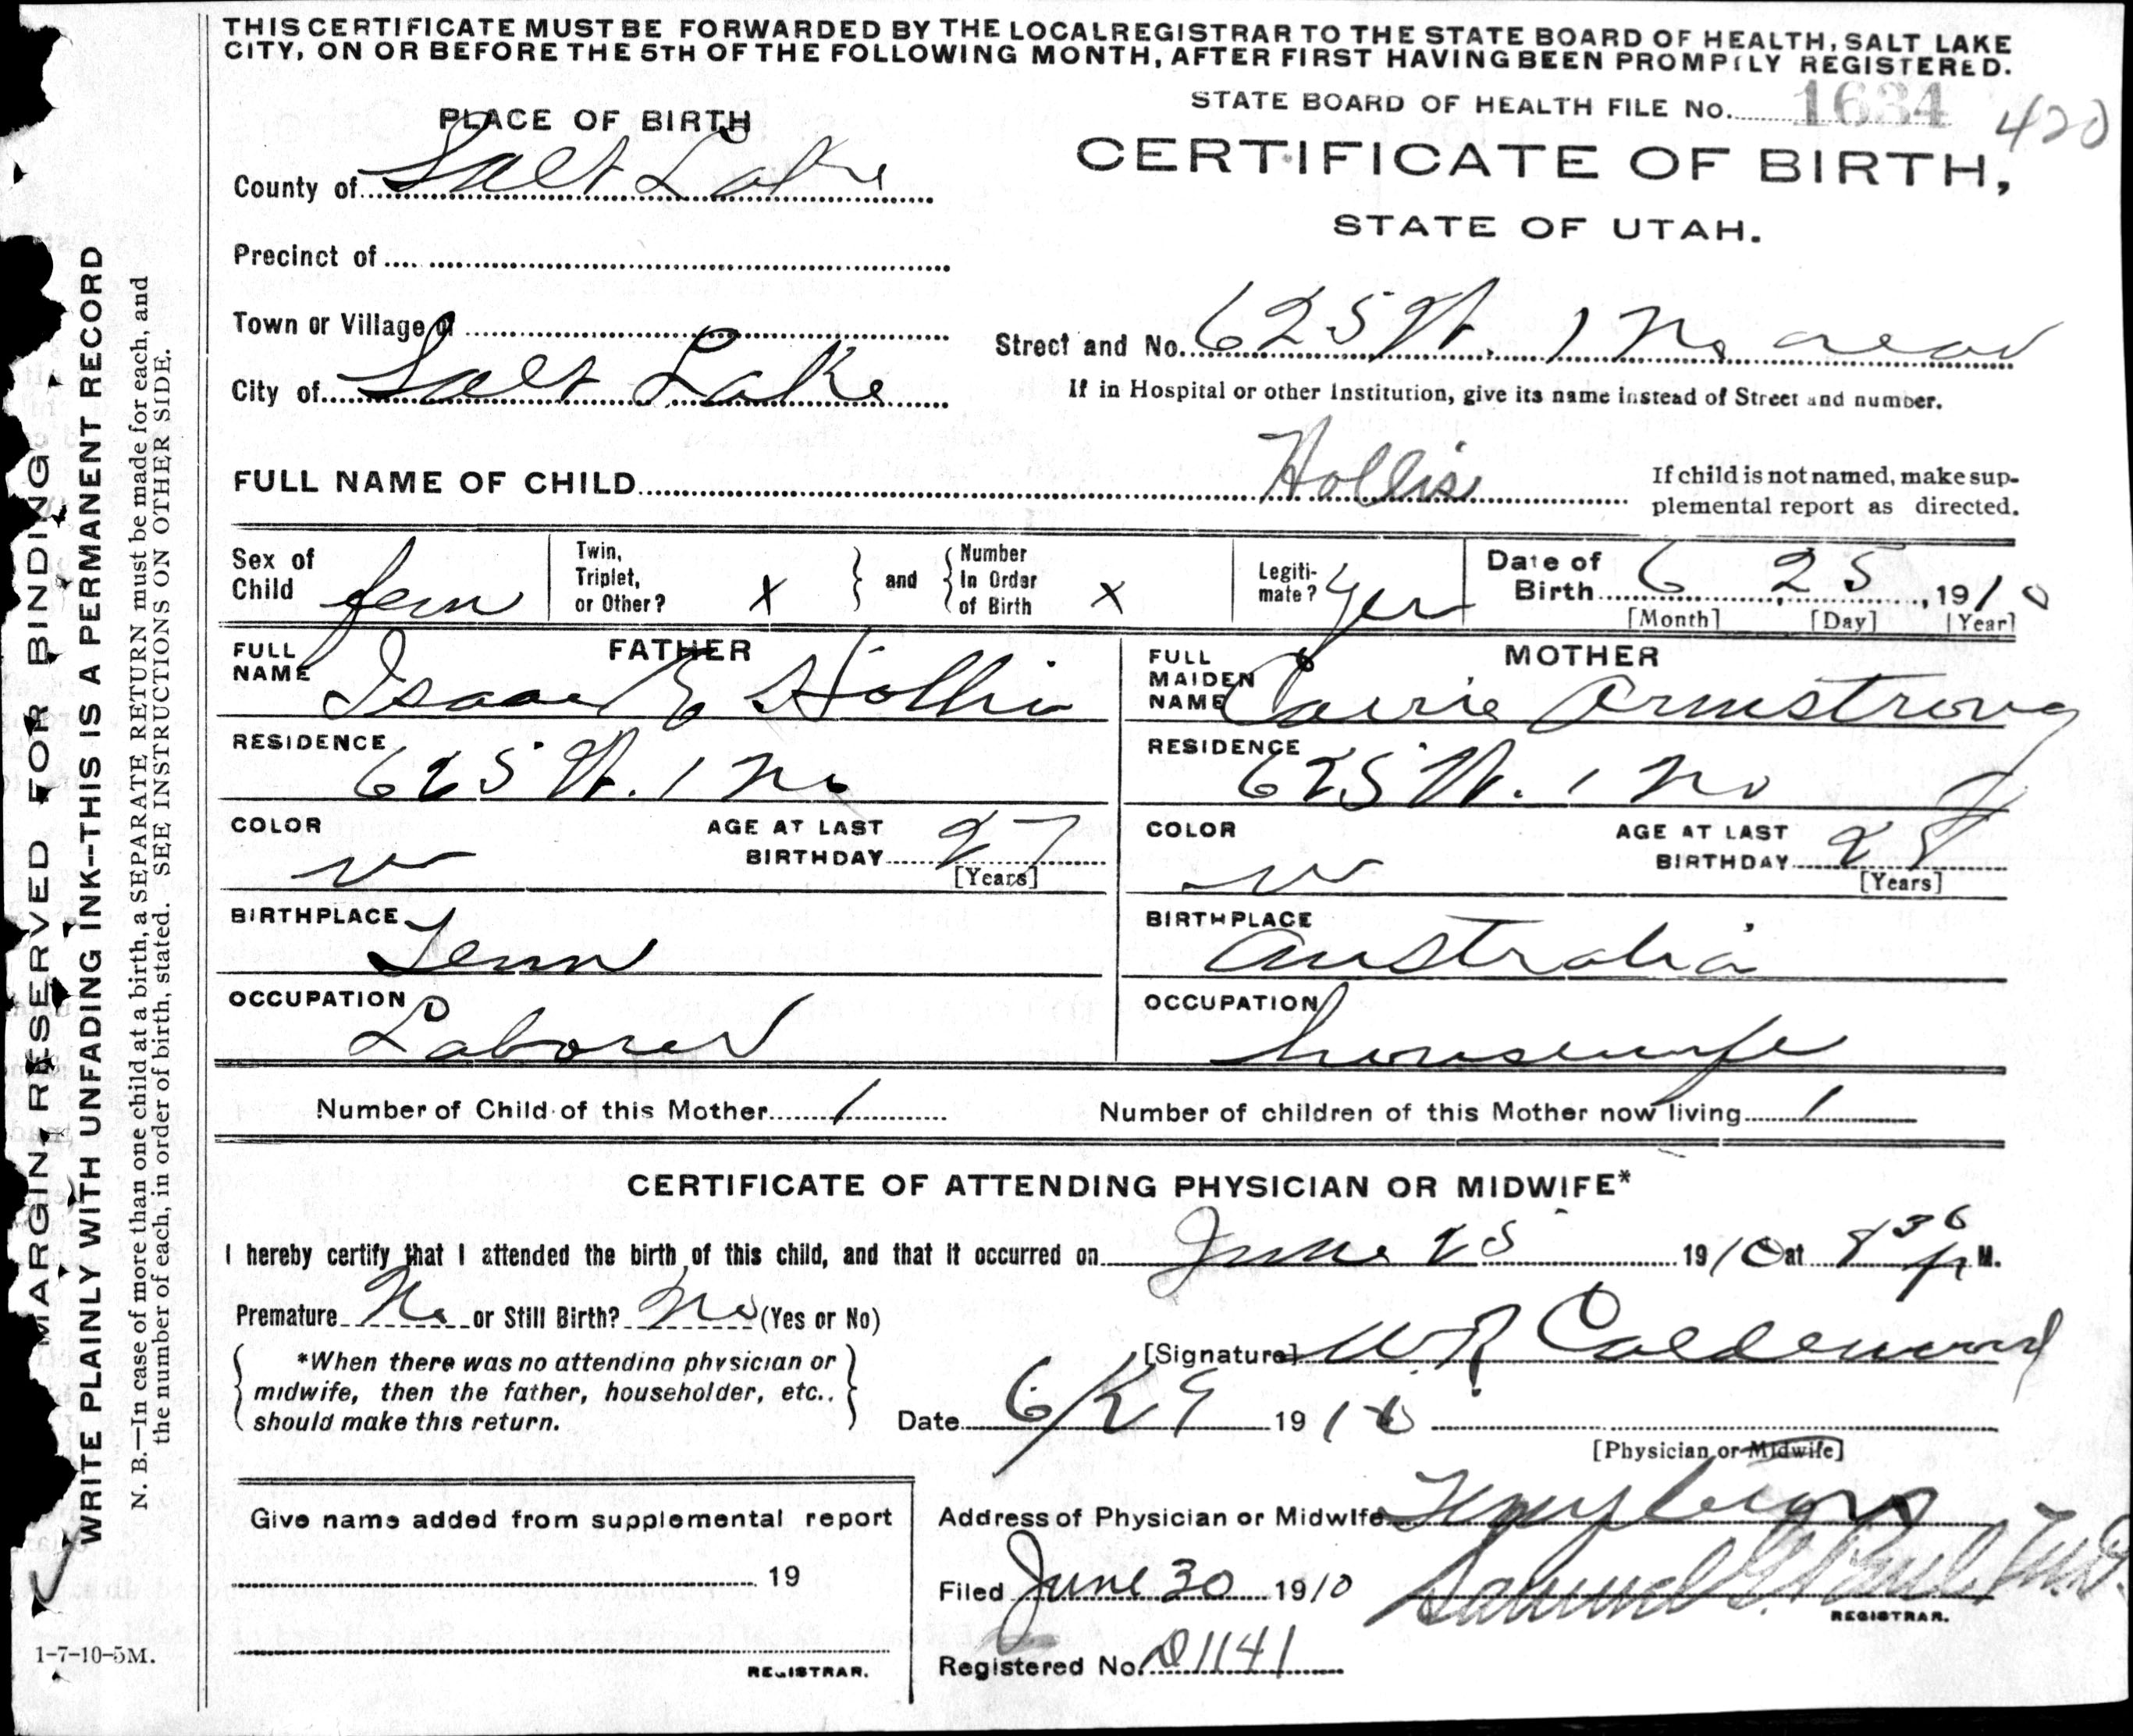 THIS CERTIFICATE MUST BE FORWARDED BY THE LOCAL REGISTRAR TO THE STATE BOARD OF HEALTH, SALT LAKE
CITY, ON OR BEFORE THE 5TH OF THE FOLLOWING MONTH, AFTER FIRST HAVING BEEN PROMPTLY REGISTERED.
STATE BOARD OF HEALTH FILE No. 1634 420
PLACE OF BIRTH
CERTIFICATE OF BIRTH,
County of Salt Lake
STATE OF UTAH.
Precinct of
Town or Village of
Street and No. 625 W. 1 No
City of Salt Lake
If in Hospital or other Institution, give its name instead of Street and number.
FULL NAME OF CHILD Hollis
If child is not named, make sup-
plemental report as directed.
Sex of Child fem
Twin, Triplet, or Other? x
and
Number In Order of Birth x
Legiti-mate? Yes
Date of Birth 6 25, 1910
[Month] [Day] [Year]
FATHER
FULL NAME Isaac E Hollis
RESIDENCE 625 W. 1 No
COLOR w
AGE AT LAST BIRTHDAY 27
[Years]
BIRTHPLACE Tenn
OCCUPATION Laborer
MOTHER
FULL MAIDEN NAME Carrie Armstrong
RESIDENCE 625 W. 1 No
COLOR w
AGE AT LAST BIRTHDAY 28
[Years]
BIRTHPLACE Australia
OCCUPATION housewife
Number of Child of this Mother 1
Number of children of this Mother now living 1
CERTIFICATE OF ATTENDING PHYSICIAN OR MIDWIFE*
I hereby certify that I attended the birth of this child, and that it occurred on June 25 1910 at 8 30 p M.
Premature No or Still Birth? No (Yes or No)
[Signature] W R Calderwood
*When there was no attending physician or
midwife, then the father, householder, etc.,
should make this return.
Date 6/29 1910
[Physician or Midwife]
Give name added from supplemental report
19
REGISTRAR.
Address of Physician or Midwife
Filed June 30 1910 Samuel G. Paul M.D.
REGISTRAR.
Registered No. D1141
MARGIN RESERVED FOR BINDING
WRITE PLAINLY WITH UNFADING INK--THIS IS A PERMANENT RECORD
N. B.—In case of more than one child at a birth, a SEPARATE RETURN must be made for each, and
the number of each, in order of birth, stated. SEE INSTRUCTIONS ON OTHER SIDE.
1-7-10-5M.